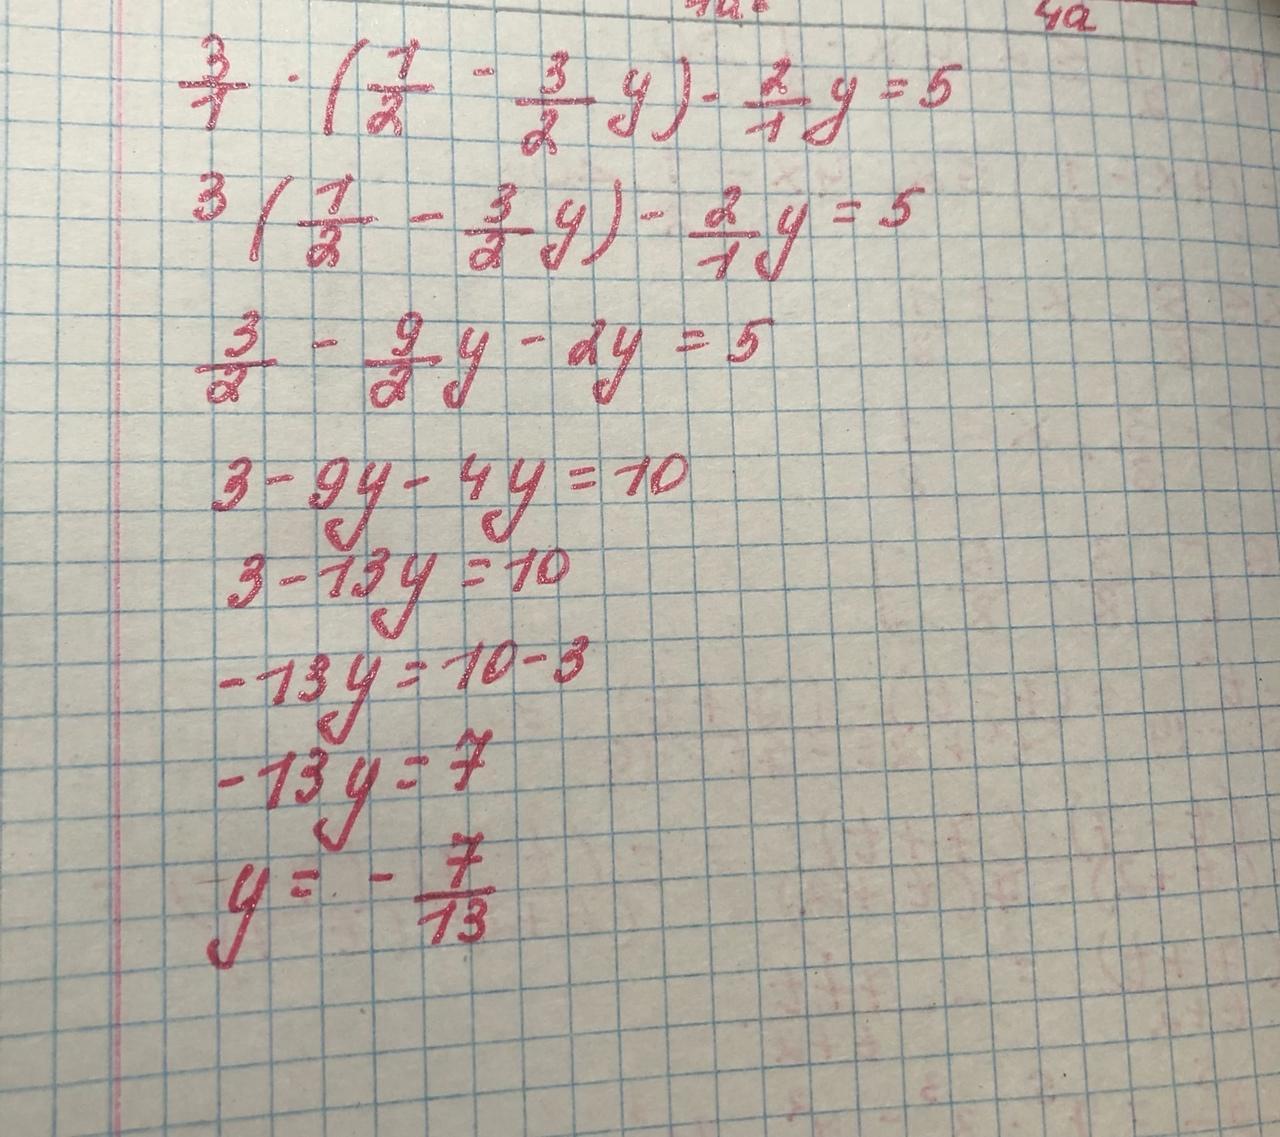 4a
3/1 · (1/2 - 3/2 y) - 2/1 y = 5
3 (1/2 - 3/2 y) - 2/1 y = 5
3/2 - 9/2 y - 2y = 5
3 - 9y - 4y = 10
3 - 13y = 10
-13y = 10 - 3
-13y = 7
y = - 7/13